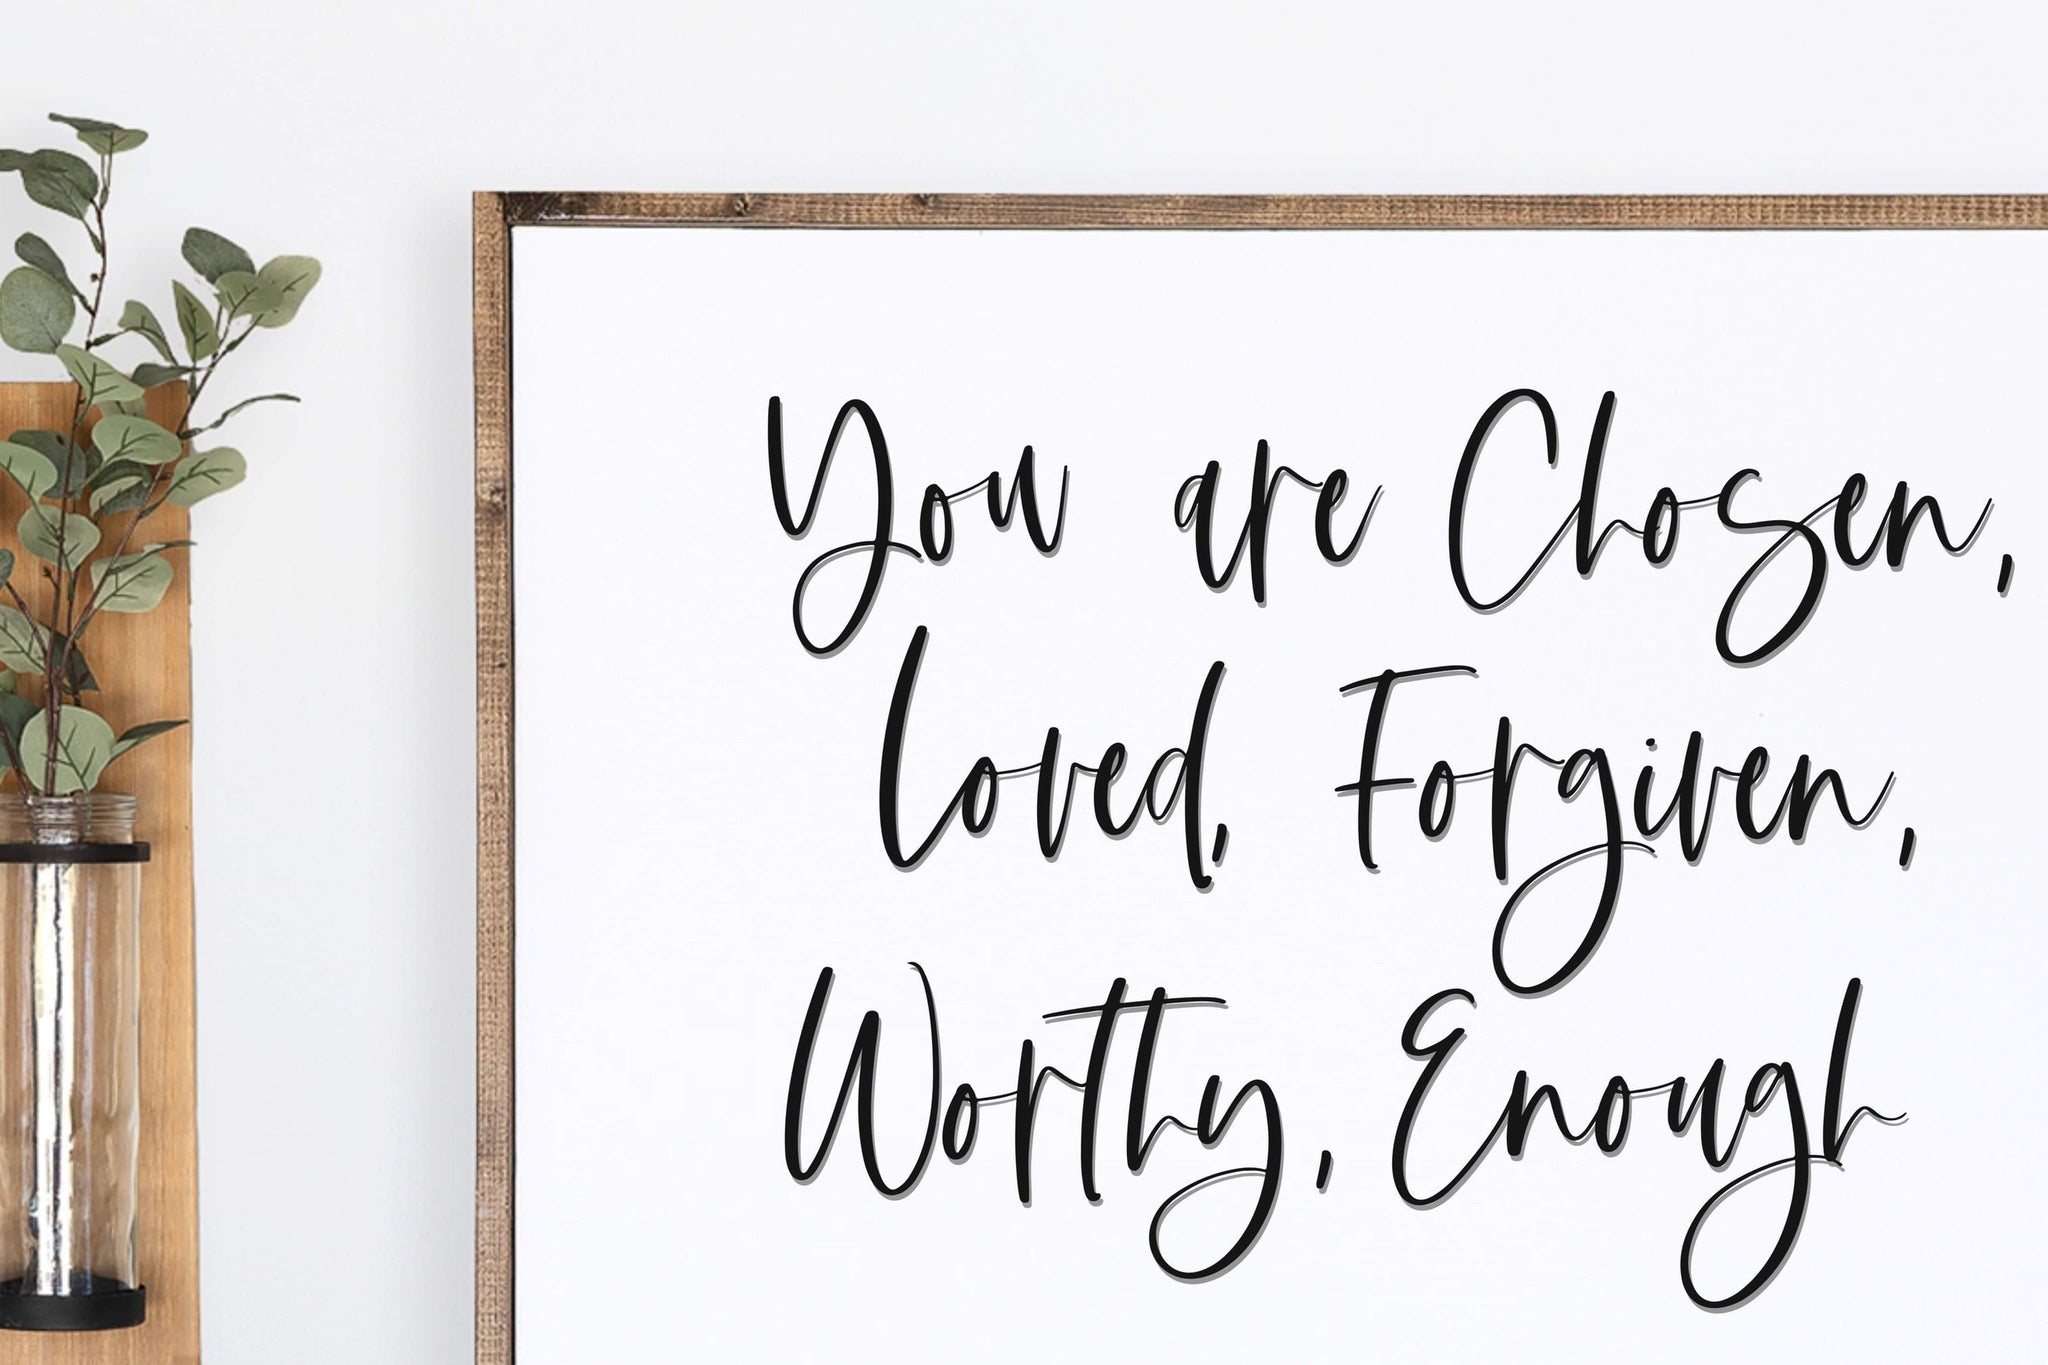 You are Chosen,
Loved, Forgiven,
Worthy, Enough